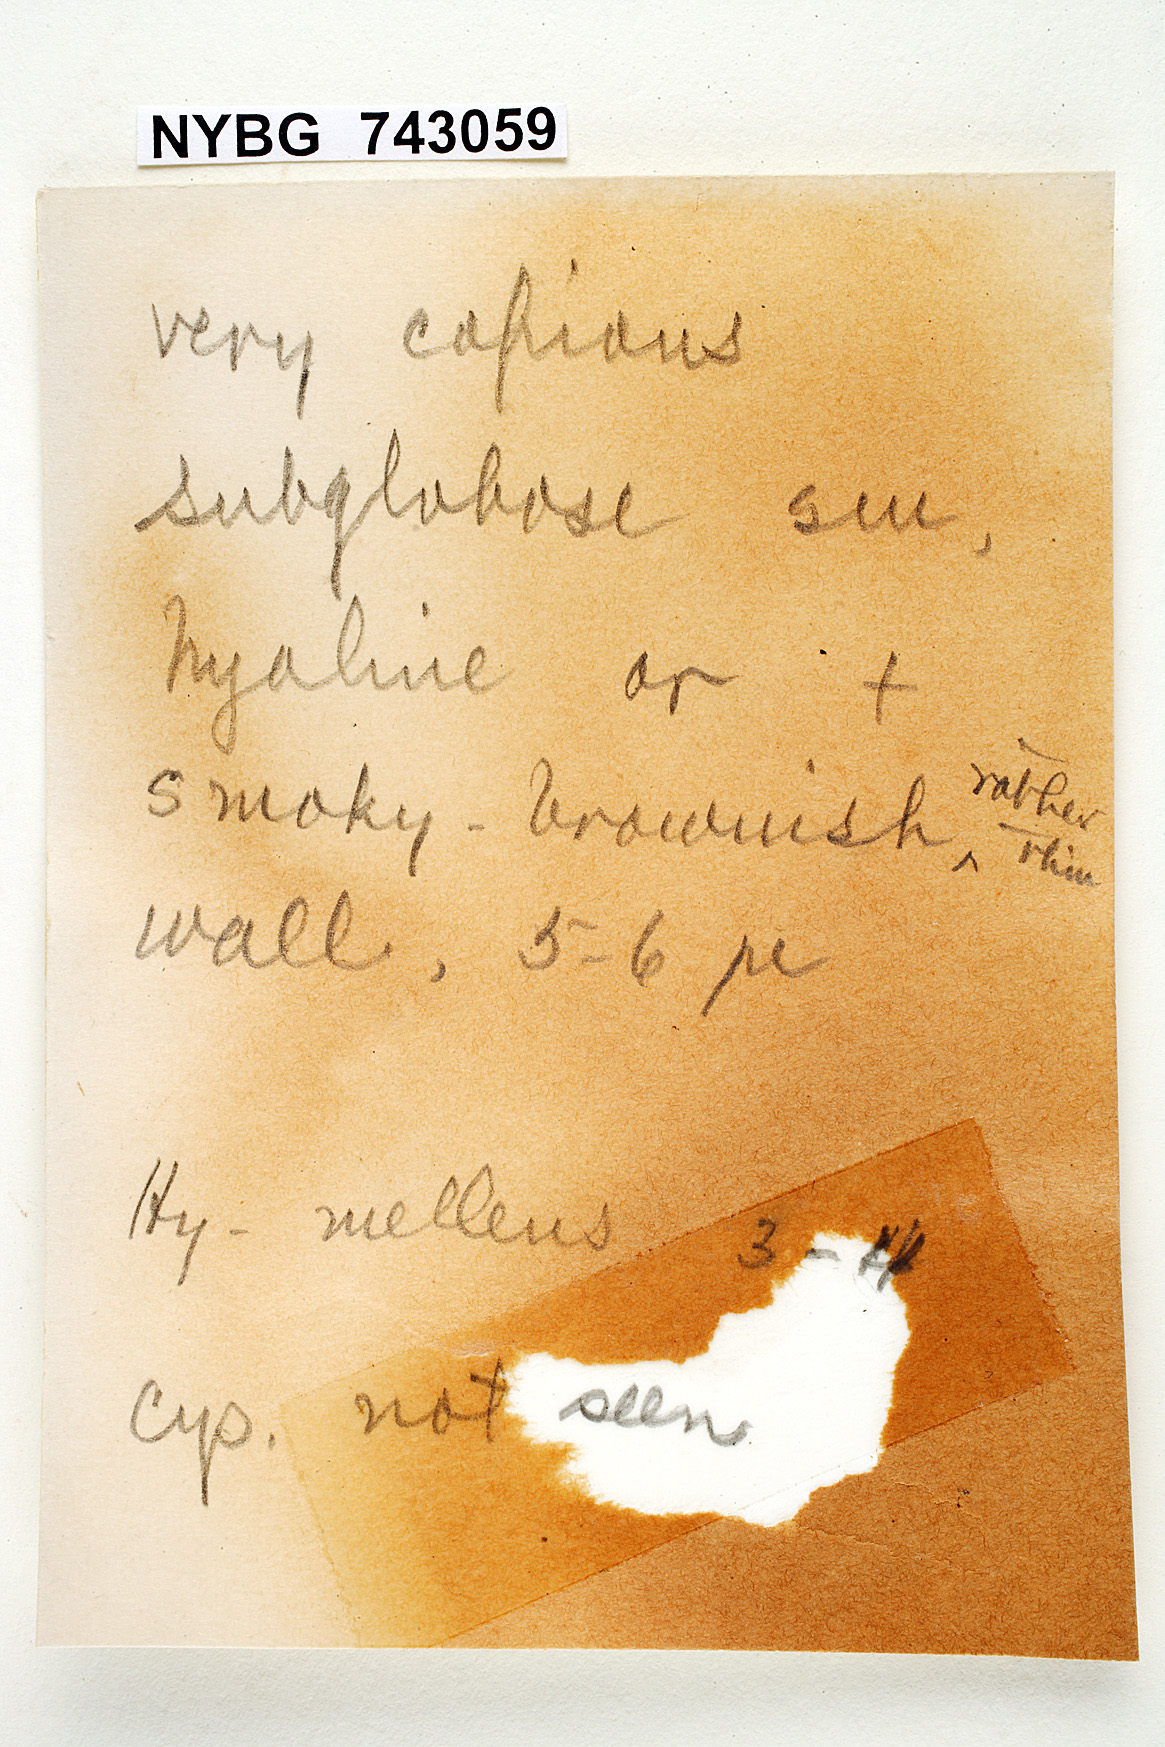 NYBG 743059
very copious
subglobose sm,
hyaline or +
smoky - brownish, rather
thin
wall, 5-6 µ
Hy- melleus 3-4
Cys. not seen